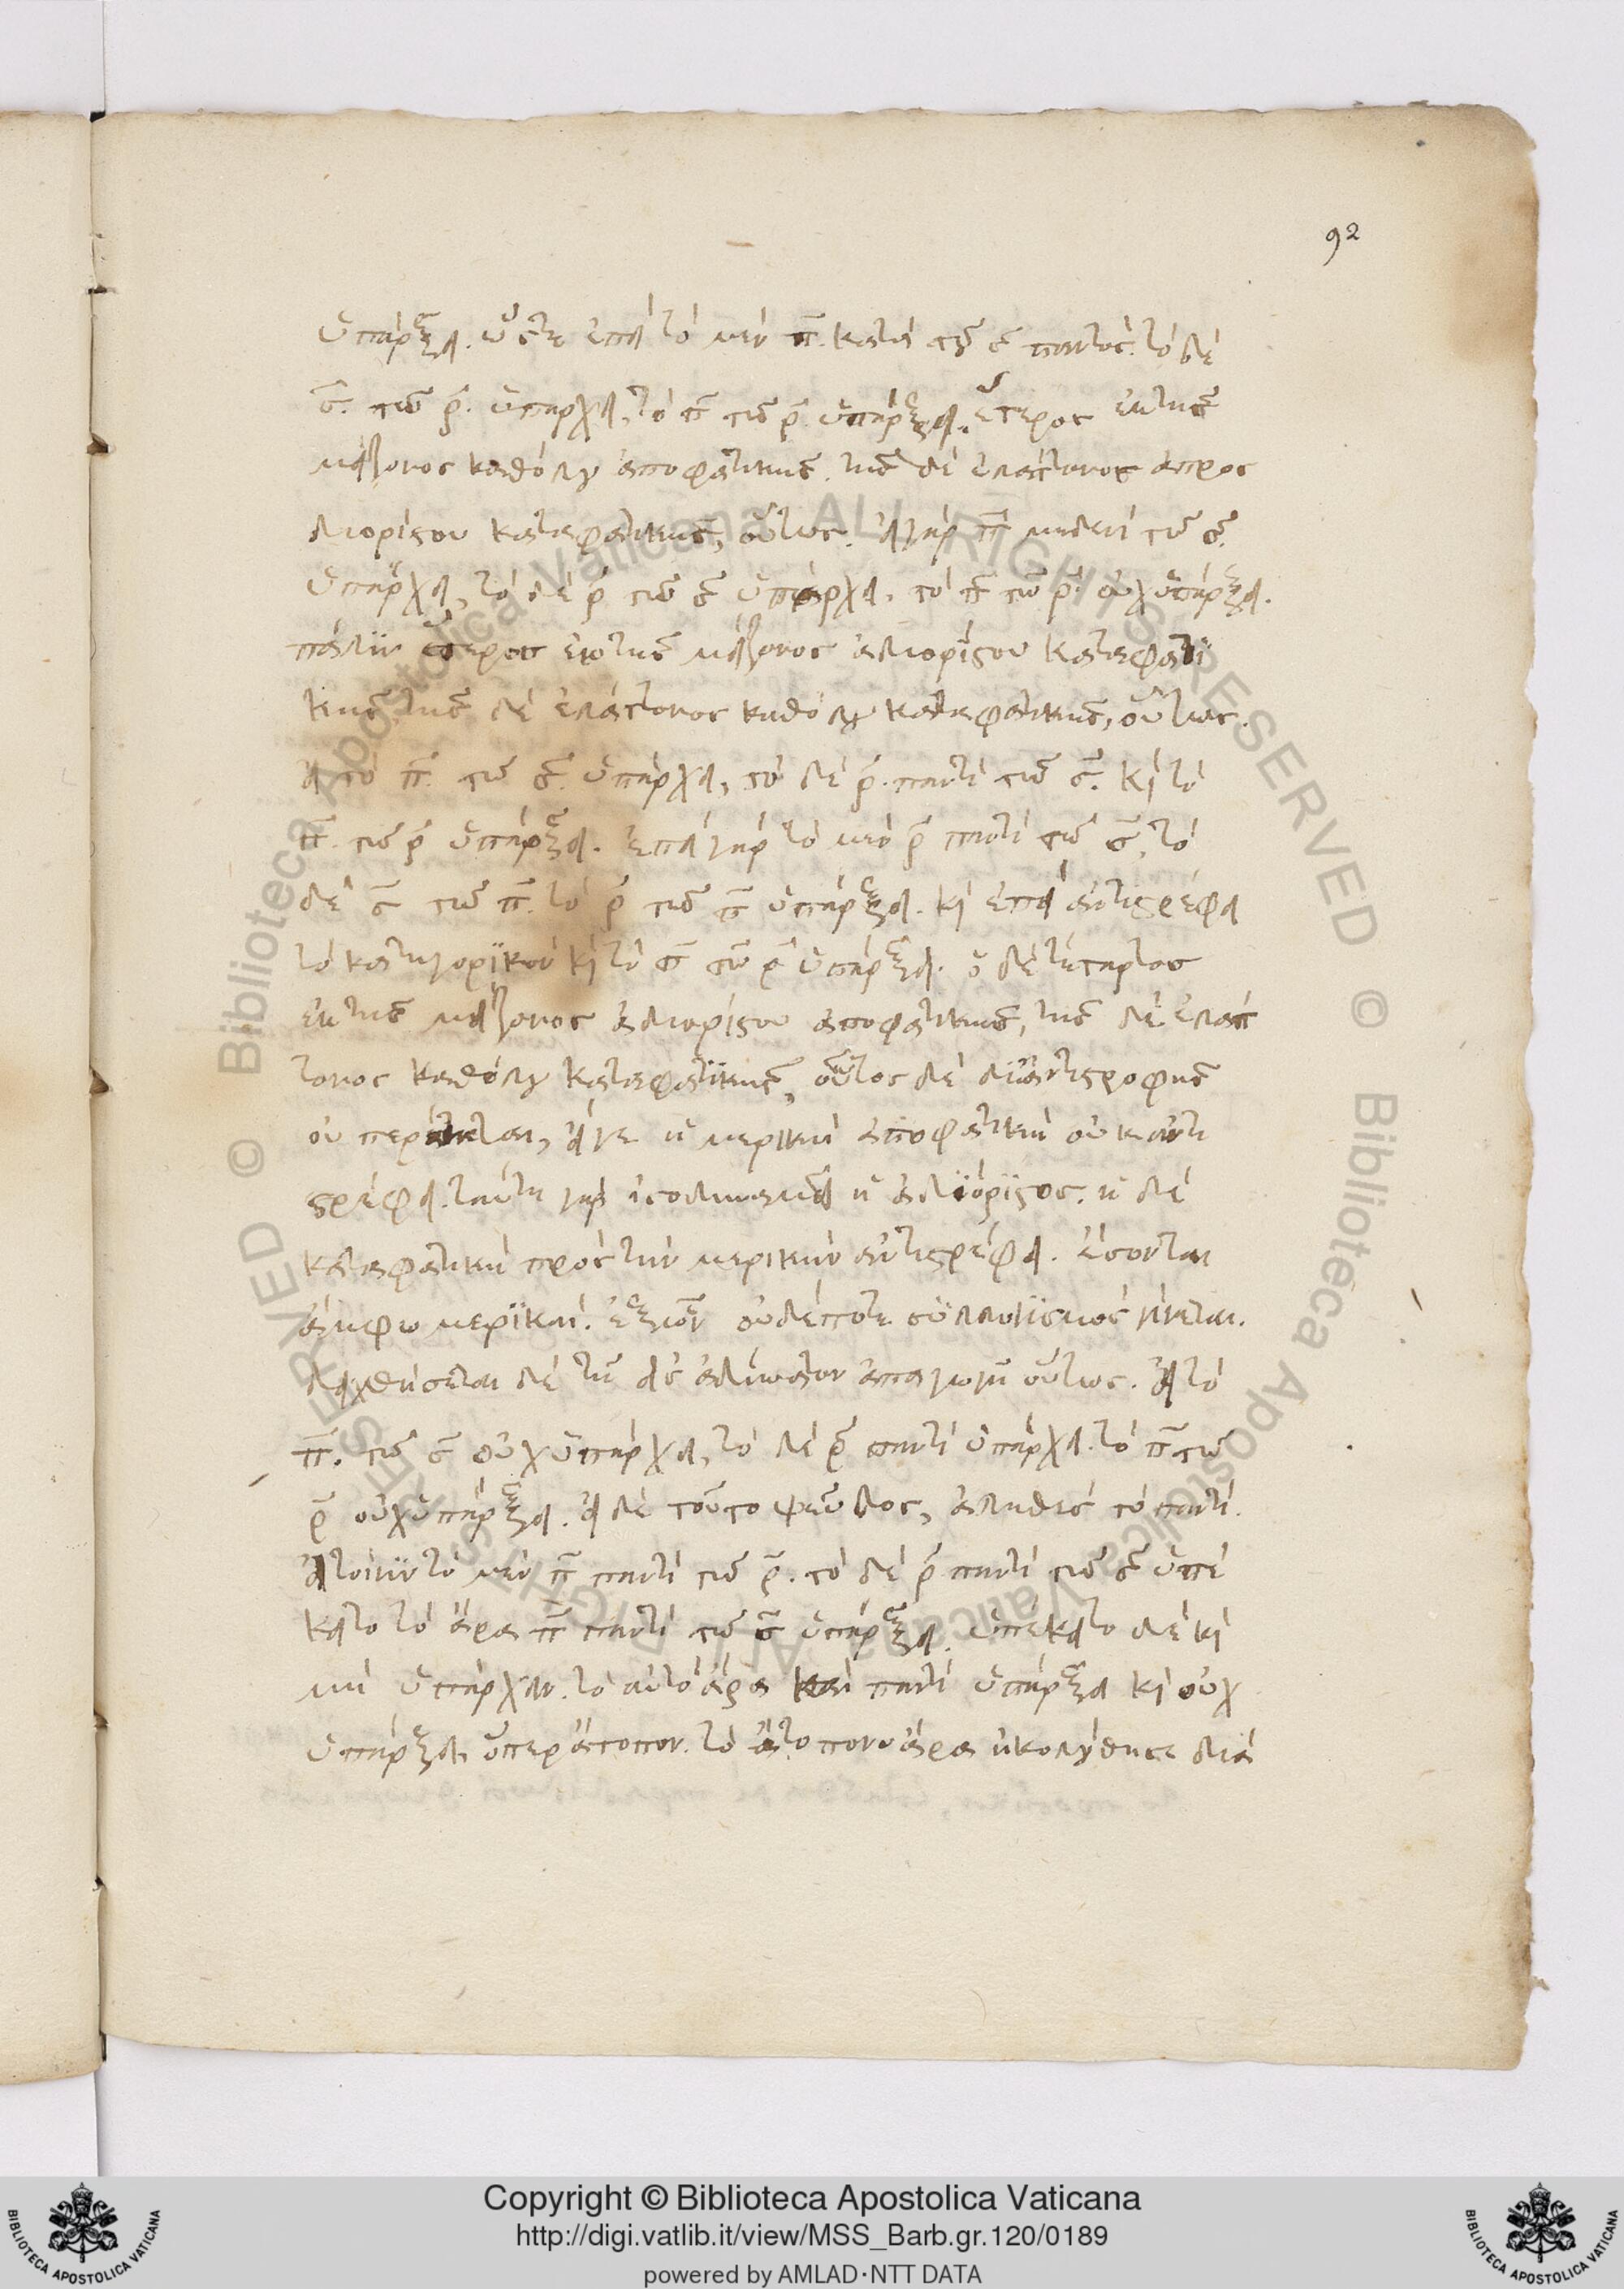 92
ὑπάρξει. ὥστε ἐπεὶ τὸ μὲν π̅. κατὰ τοῦ σ̅ παντός. τὸ δὲ
σ̅. τῶ ρ̅. ὑπάρχει, τὸ π̅ τῶ ρ̅ ὑπάρξει. ἕτερος ἐκ τῆς
μείζονος καθόλου ἀποφατικῆς. τῆς δὲ ἐλάττονος ἀπροσ
διορίστου καταφατικῆς, οὕτως. εἰ γὰρ π̅ μηδενὶ τῶ σ̅.
ὑπάρχει, τὸ δὲ ρ̅ τῶ σ̅ ὑπάρχει, τὸ π̅ τῶ ρ̅ οὐχ ὑπάρξει.
πάλιν ἕτερος ἐκ τῆς μείζονος ἀδιορίστου καταφατι
κῆς, τῆς δὲ ἐλάττονος καθόλου καταφατικῆς, οὕτως.
εἰ τὸ π̅. τῶ σ̅. ὑπάρχει, τὸ δὲ ρ̅. παντὶ τῶ σ̅. κὶ τὸ
π̅. τῶ ρ̅ ὑπάρξει. ἐπεὶ γὰρ τὸ μὲν ρ̅ παντὶ τῶ σ̅, τὸ
δὲ σ̅ τῶ π̅. τὸ ρ̅ τῶ π̅ ὑπάρξει. κὶ ἐπεὶ ἀντιστρέφει
τὸ κατηγορικὸν κὶ τὸ π̅ τῶ ρ̅ ὑπάρξει. ὁ δὲ τέταρτος
ἐκ τῆς μείζονος ἀδιορίστου ἀποφατικῆς, τῆς δὲ ἐλάτ
τονος καθόλου καταφατικῆς, οὗτος δὲ δι' ἀντιστροφῆς
οὐ περαίνεται, εἴγε ἡ μερικὴ ἀποφατικὴ οὐκ ἀντι
στρέφει. ταύτη γὰρ ἰσοδυναμεῖ ἡ ἀδιόριστος. ἡ δὲ
καταφατικὴ πρὸς τὴν μερικὴν ἀντιστρέφει. ἔσονται
ἄμφω μερικαί. ἐξ ὧν οὐδέποτε συλλογισμὸς γίνεται.
δειχθήσεται δὲ τῆ εἰς ἀδύνατον ἀπαγωγῆ οὕτως. εἰ τὸ
π̅. τῶ σ̅ οὐχ ὑπάρχει, τὸ δὲ ρ̅ παντὶ ὑπάρχει. τὸ π̅ τῶ
ρ̅ οὐχ ὑπάρξει. εἰ δὲ τοῦτο ψεῦδος, ἀληθὲς τὸ παντί.
εἰ τοίνυν τὸ μὲν π̅ παντὶ τῶ ρ̅. τὸ δὲ ρ̅ παντὶ τῶ σ̅ ὑπέ
κειτο τὸ ἄρα π̅ παντὶ τῶ σ̅ ὑπάρξει. ὑπέκειτο δὲ κὶ
μὴ ὑπάρχειν. τὸ αὐτὸ ἄρα καὶ παντὶ ὑπάρξει κὶ οὐχ
ὑπάρξει, ὅπερ ἄτοπον. τὸ ἄτοπον ἄρα ἠκολούθησε διὰ
Copyright © Biblioteca Apostolica Vaticana
http://digi.vatlib.it/view/MSS_Barb.gr.120/0189
powered by AMLAD·NTT DATA